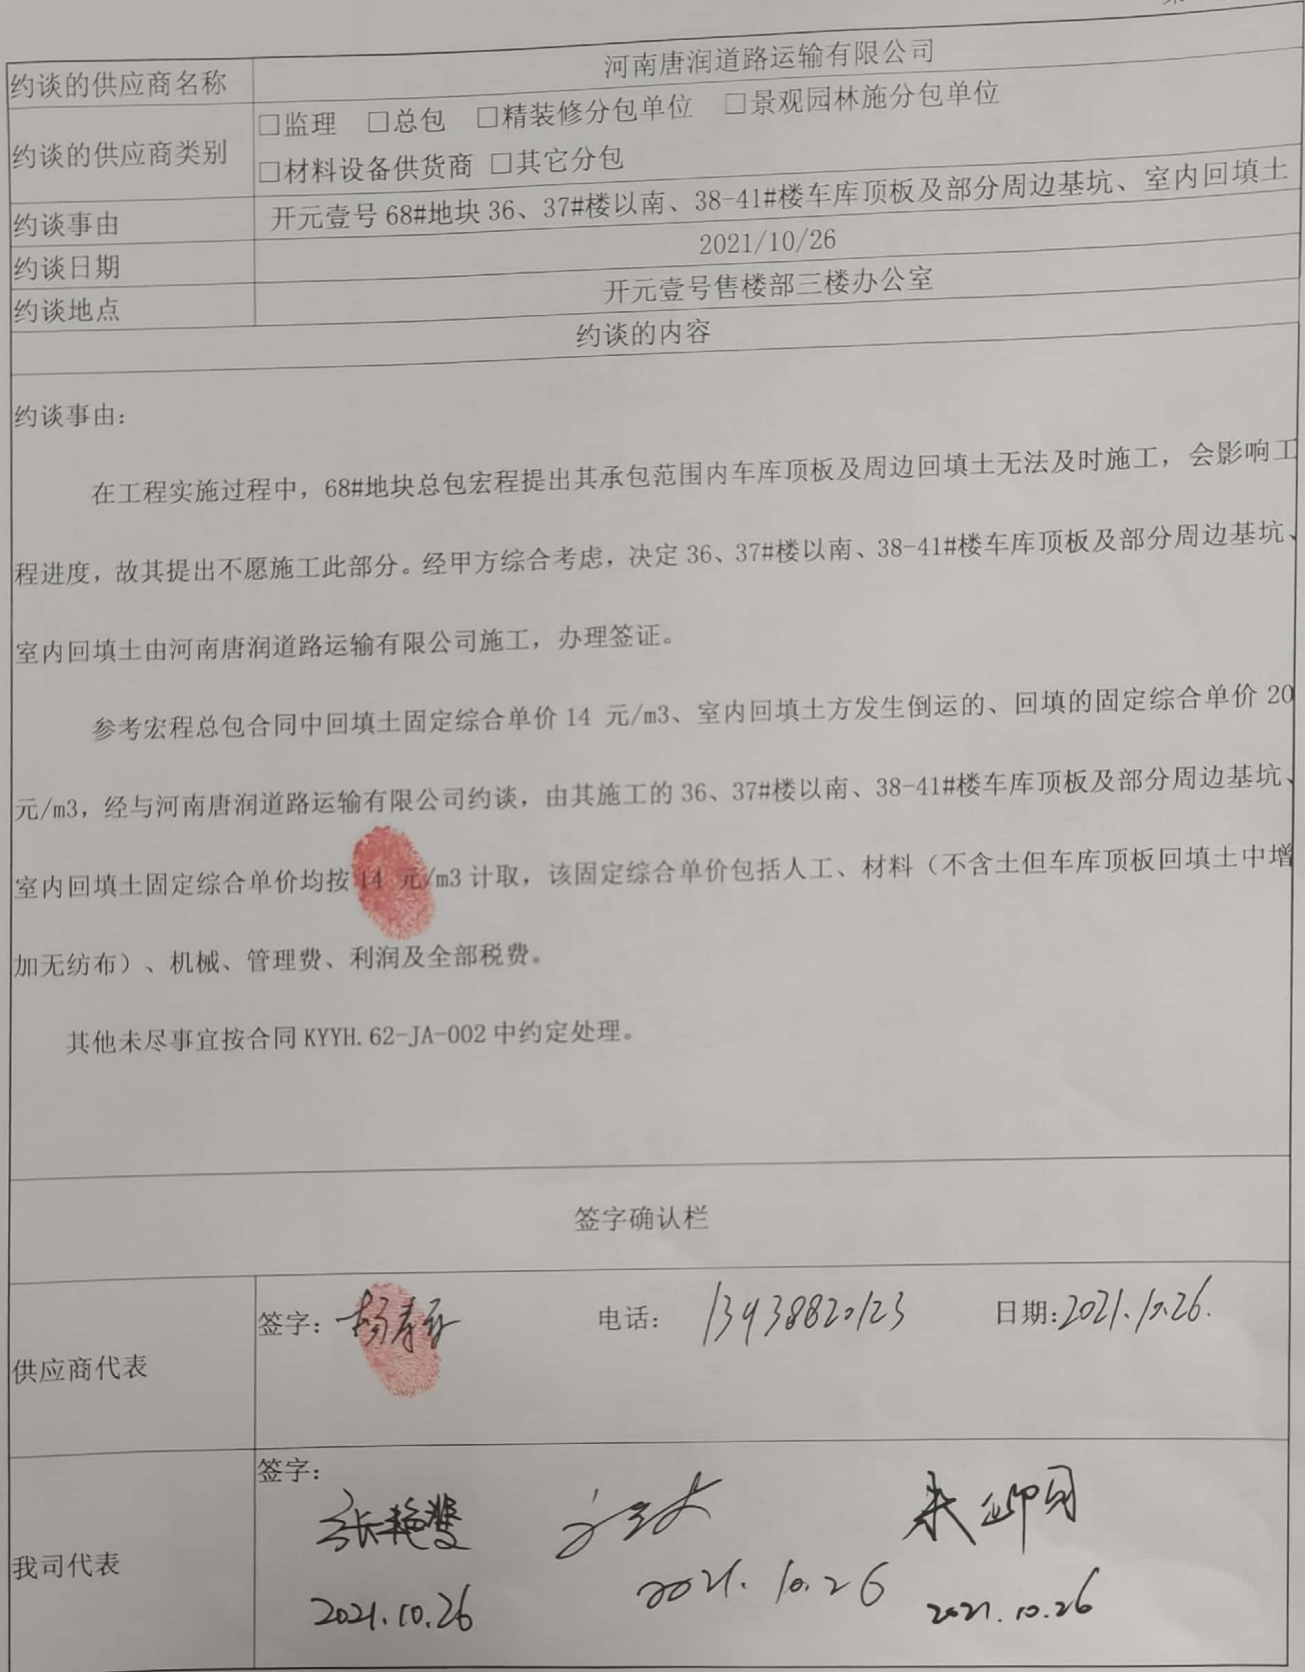 约谈的供应商名称 河南唐润道路运输有限公司
约谈的供应商类别 □监理 □总包 □精装修分包单位 □景观园林施分包单位
□材料设备供货商 □其它分包
约谈事由 开元壹号68#地块36、37#楼以南、38-41#楼车库顶板及部分周边基坑、室内回填土
约谈日期 2021/10/26
约谈地点 开元壹号售楼部三楼办公室
约谈的内容
约谈事由：
在工程实施过程中，68#地块总包宏程提出其承包范围内车库顶板及周边回填土无法及时施工，会影响工
程进度，故其提出不愿施工此部分。经甲方综合考虑，决定36、37#楼以南、38-41#楼车库顶板及部分周边基坑、
室内回填土由河南唐润道路运输有限公司施工，办理签证。
参考宏程总包合同中回填土固定综合单价14 元/m3、室内回填土方发生倒运的、回填的固定综合单价20
元/m3，经与河南唐润道路运输有限公司约谈，由其施工的36、37#楼以南、38-41#楼车库顶板及部分周边基坑、
室内回填土固定综合单价均按14 元/m3计取，该固定综合单价包括人工、材料（不含土但车库顶板回填土中增
加无纺布）、机械、管理费、利润及全部税费。
其他未尽事宜按合同KYYH.62-JA-002中约定处理。
签字确认栏
供应商代表 签字： 电话：13938820123 日期：2021.10.26.
我司代表 签字：
2021.10.26 2021.10.26 2021.10.26